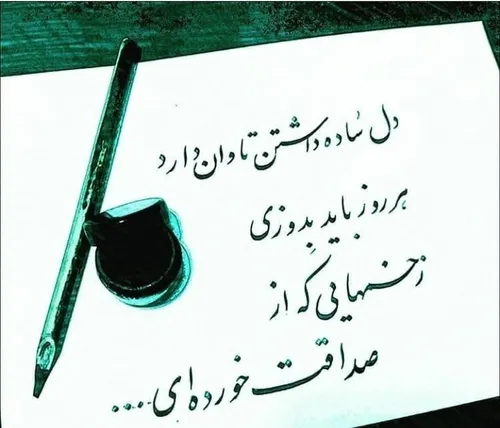 دل ساده داشتن تاوان دارد
هر روز باید بدوزی
زخمهایی که از
صداقت خورده ای ....